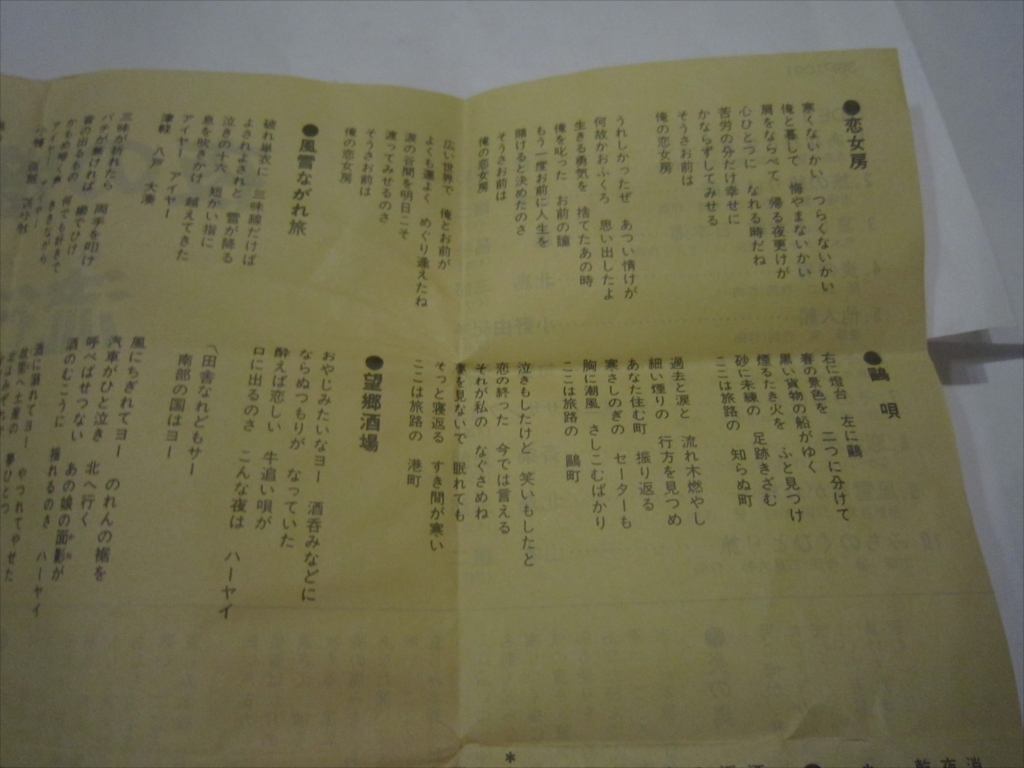 ●恋女房
寒くないかい つらくないかい
俺と暮して 悔やまないかい
肩をならべて 帰る夜更けが
心ひとつに なれる時だね
苦労の分だけ幸せに
かならずしてみせる
そうさお前は
俺の恋女房
うれしかったぜ あつい情けが
何故かおふくろ 思い出したよ
生きる勇気を 捨てたあの時
俺を叱った お前の頬
もう一度お前に人生を
賭けると決めたのさ
そうさお前は
俺の恋女房
広い世界で 俺とお前が
よくも運よく めぐり逢えたね
涙の谷間を明日こそ
渡ってみせるのさ
そうさお前は
俺の恋女房
●風雪ながれ旅
破れ単衣に 三味線だけば
よされよされと 雪が降る
泣きの十六 短かい指に
息を吹きかけ 越えてきた
アイヤー アイヤー
津軽 八戸 大湊
三味が折れたら 両手を叩け
バチが無ければ 櫛でひけ
音の出るもの 何でも好きで
かもめ啼く声 ききながら
アイヤー アイヤー
●鷗 唄
右に燈台 左に鷗
春の景色を 二つに分けて
黒い貨物の船がゆく
煙るたき火を ふと見つけ
砂に未練の 足跡きざむ
ここは旅路の 知らぬ町
過去と涙と 流れ木燃やし
細い煙りの 行方を見つめ
あなた住む町 振り返る
寒さしのぎの セーターも
胸に潮風 さしこむばかり
ここは旅路の 鷗町
泣きもしたけど 笑いもしたと
恋の終った 今では言える
それが私の なぐさめね
夢を見ないで 眠れても
そっと寝返る すき間が寒い
ここは旅路の 港町
●望郷酒場
おやじみたいなヨー 酒呑みなどに
ならぬつもりが なっていた
酔えば恋しい 牛追い唄が
口に出るのさ こんな夜は ハーヤイ
〽田舎なれどもサー
南部の国はヨー
風にちぎれてヨー のれんの裾を
汽車がひと泣き 北へ行く
呼べばせつない あの娘の面影が
酒のむこうに 揺れるのさ ハーヤイ
酒に溺れてヨー やつれてやせた